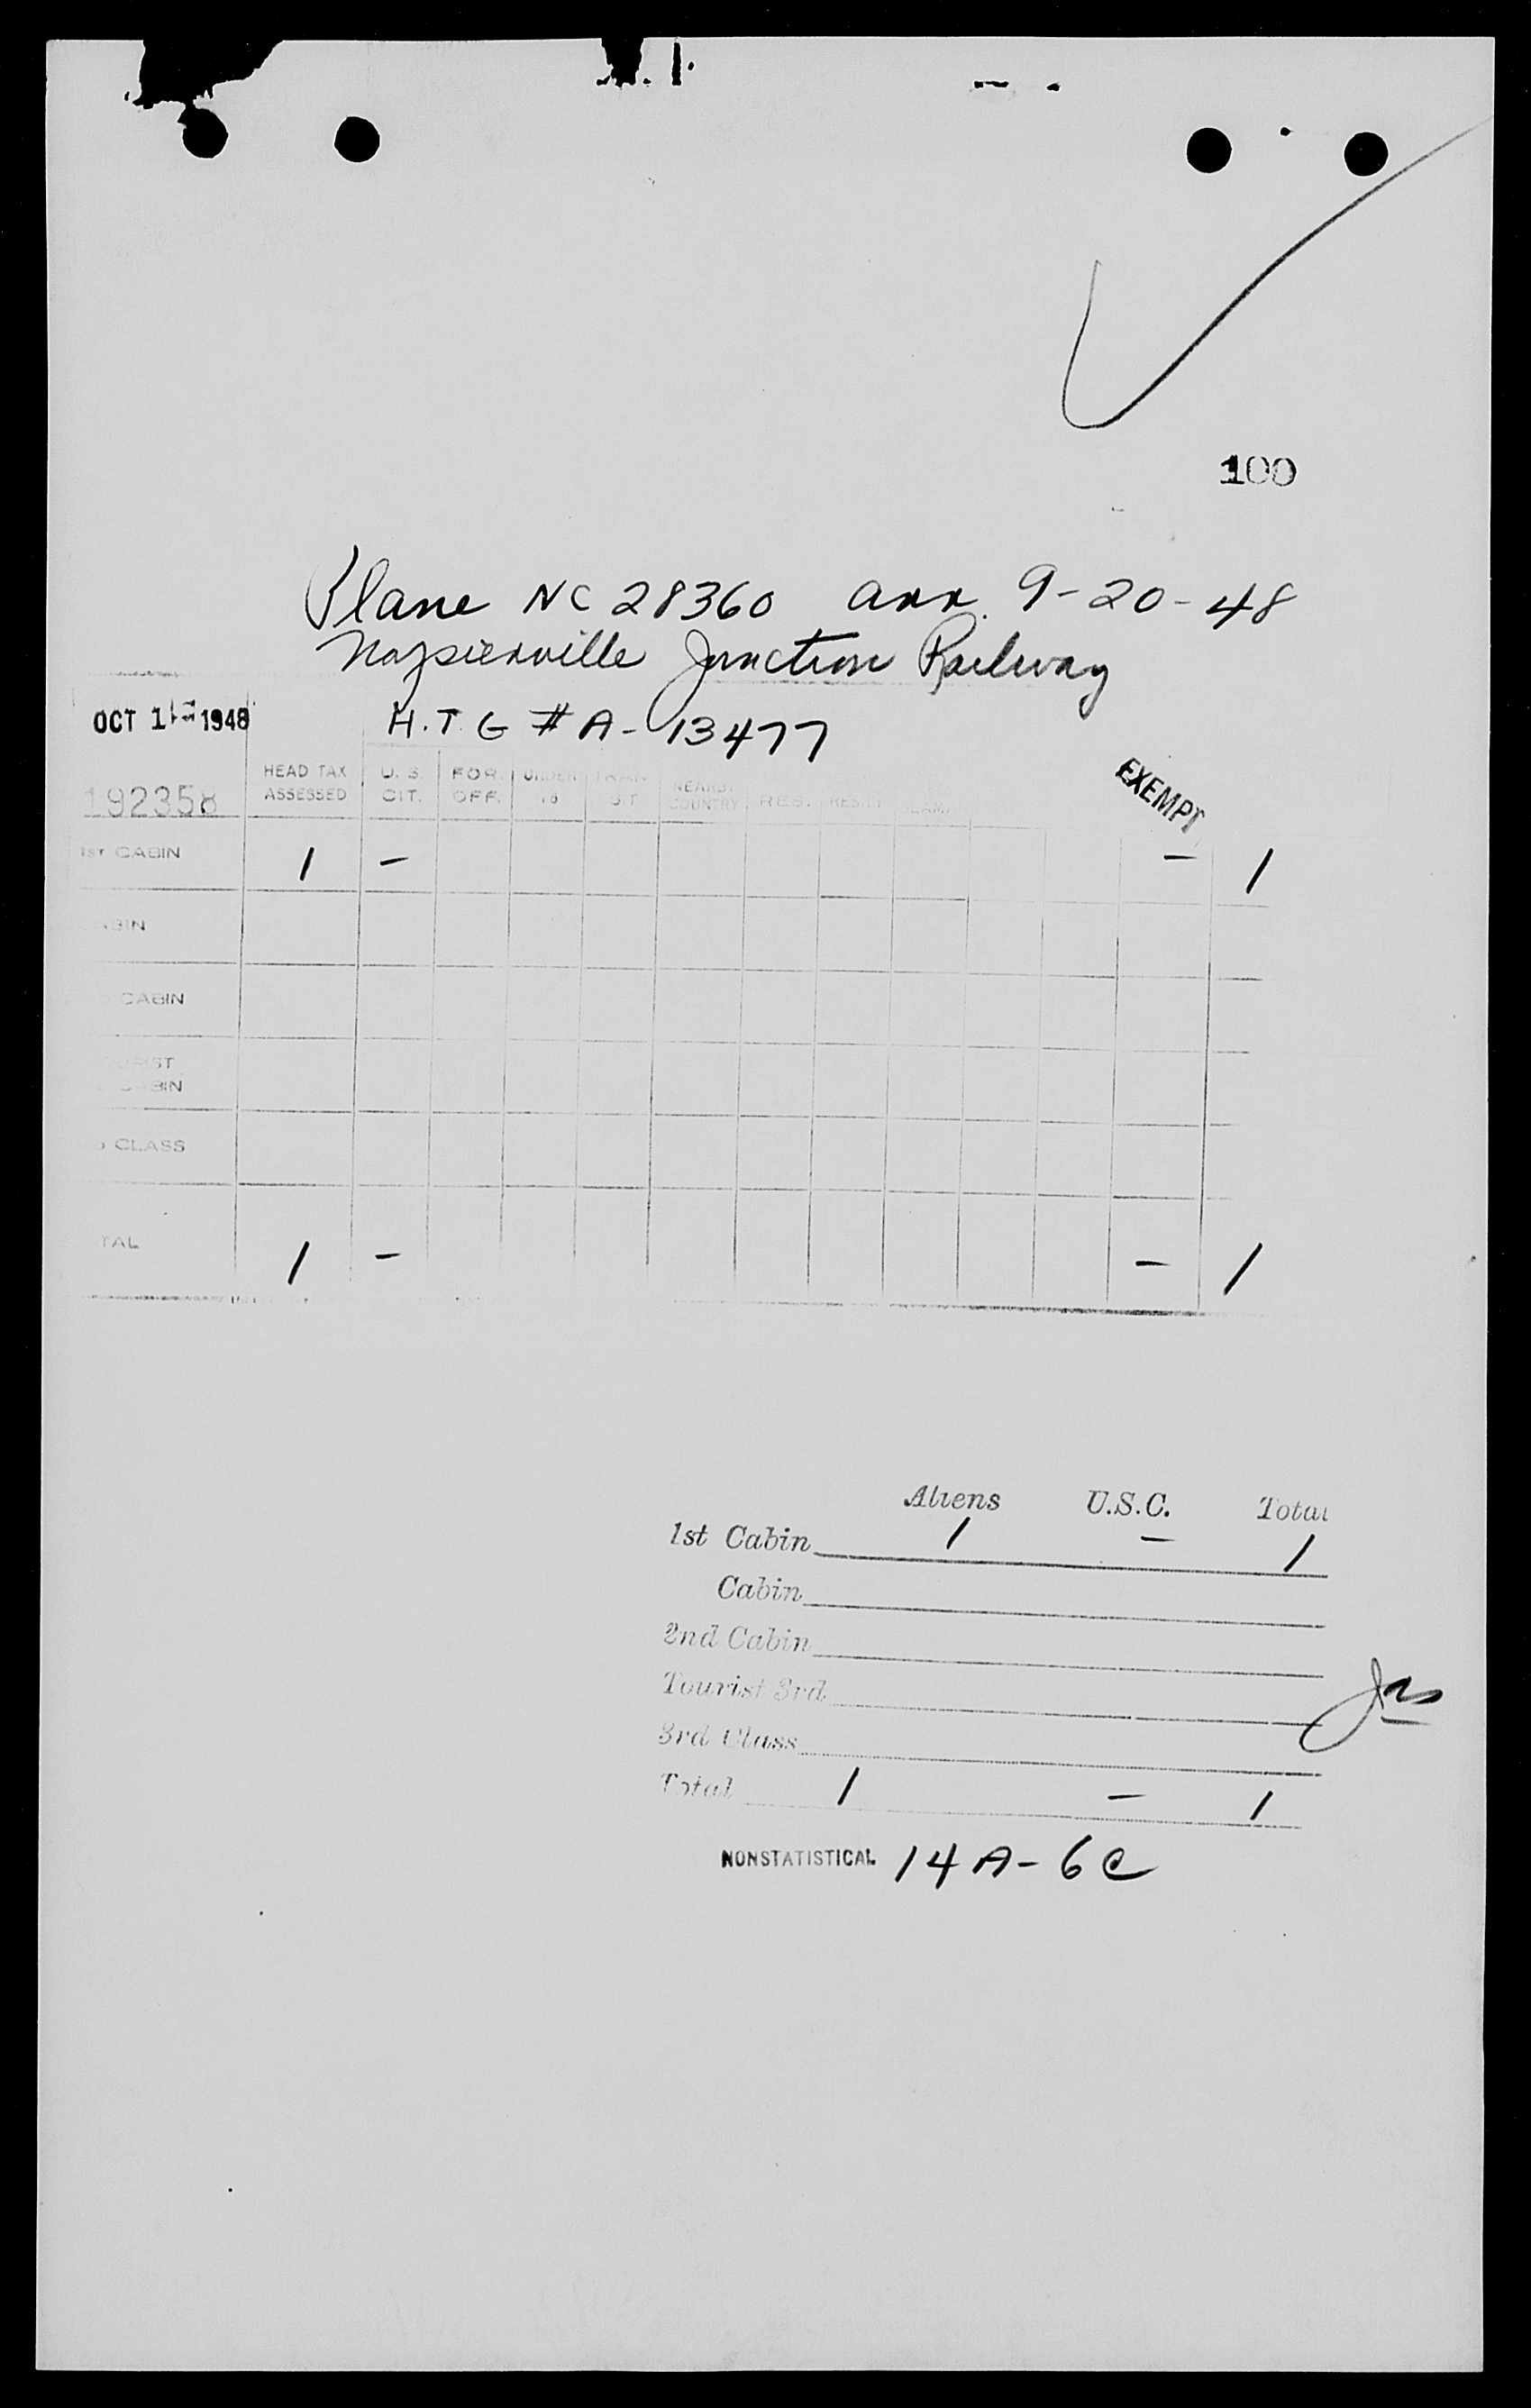 100
Plane NC 28360 arr. 9-20-48
Napierville Junction Railway
OCT 1 1948 H.T.G # A-13477
192358 HEAD TAX ASSESSED U.S. CIT. FOR. OFF. UNDER 16 TRAN SIT NEARBY COUNTRY RES. EXEMPT
1ST CABIN 1 - - 1
CABIN
CABIN
CLASS
1 - - 1
Aliens U.S.C. Total
1st Cabin 1 - 1
Cabin
2nd Cabin
Tourist 3rd
3rd Class
Total 1 - 1
NONSTATISTICAL 14A-6C